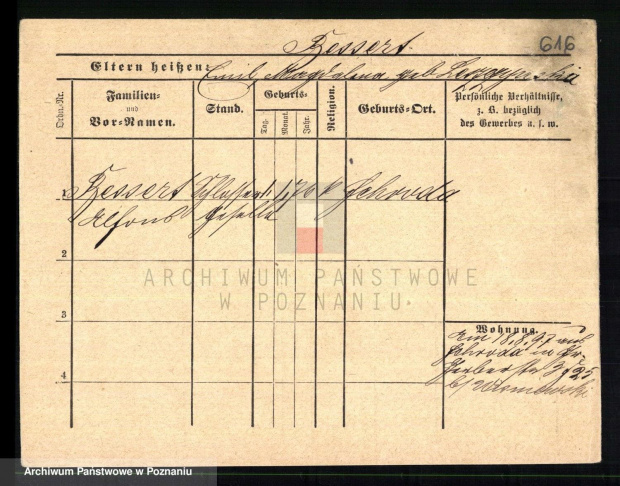 Bessert.
616
Eltern heißen:
Emil, Magdalena geb.
Ordn.-Nr.
Familien-
und
Vor-Namen.
Stand.
Geburts-
Tag.
Monat.
Jahr.
Religion.
Geburts-Ort.
Persönliche Verhältnisse,
z. B. bezüglich
des Gewerbes u. s. w.
1
Bessert Schlosser 76 k Schroda
Alfons Geselle
2
3
4
Wohnung.
Am 18.8.97 aus
Schroda in Gr.
Gerberstr 25
b/
ARCHIWUM PAŃSTWOWE
W POZNANIU
Archiwum Państwowe w Poznaniu